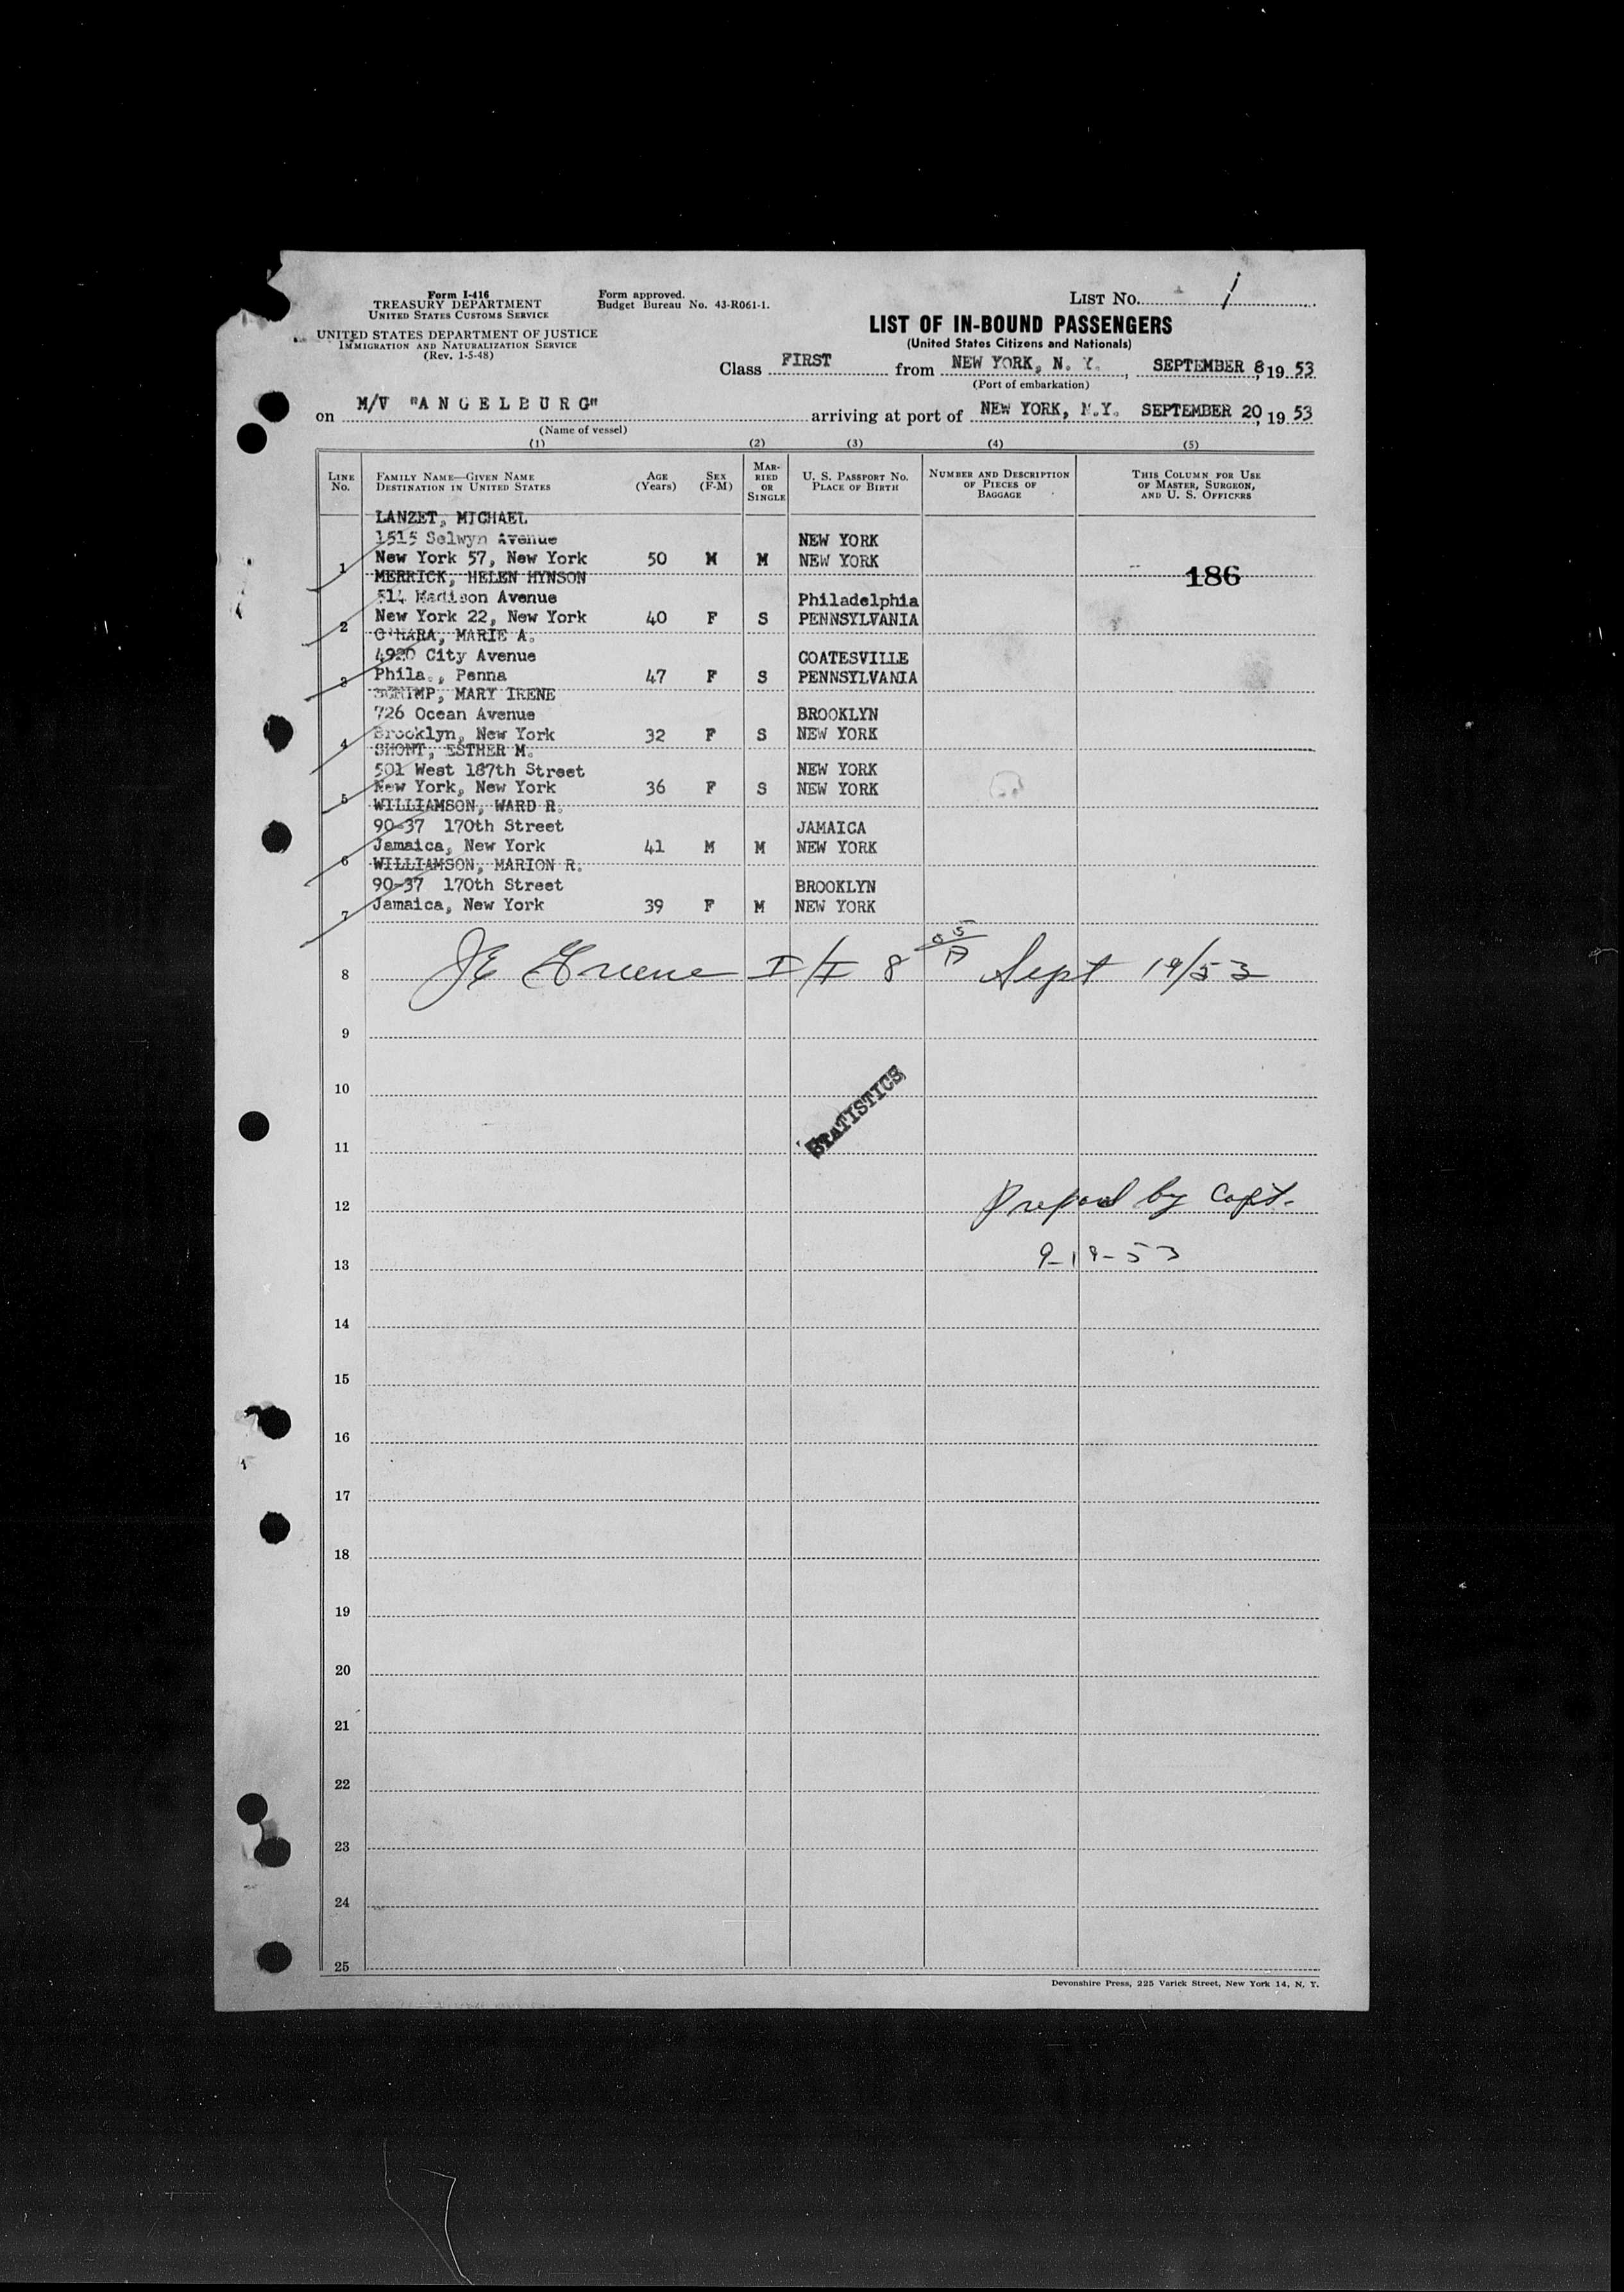 Form I-416
TREASURY DEPARTMENT
UNITED STATES CUSTOMS SERVICE
UNITED STATES DEPARTMENT OF JUSTICE
IMMIGRATION AND NATURALIZATION SERVICE
(Rev. 1-5-48)
Form approved.
Budget Bureau No. 43-R061-1.
LIST No. 1
LIST OF IN-BOUND PASSENGERS
(United States Citizens and Nationals)
Class FIRST from NEW YORK, N. Y., SEPTEMBER 8, 19 53
(Port of embarkation)
on M/V "ANGELBURG" arriving at port of NEW YORK, N.Y. SEPTEMBER 20, 19 53
(Name of vessel)
(1) (2) (3) (4) (5)
LINE No. FAMILY NAME—GIVEN NAME DESTINATION IN UNITED STATES AGE (Years) SEX (F-M) MARRIED OR SINGLE U. S. PASSPORT NO. PLACE OF BIRTH NUMBER AND DESCRIPTION OF PIECES OF BAGGAGE THIS COLUMN FOR USE OF MASTER, SURGEON, AND U. S. OFFICERS
LANZET, MICHAEL
1515 Selwyn Avenue NEW YORK
1 New York 57, New York 50 M M NEW YORK
186
MERRICK, HELEN HYNSON
514 Madison Avenue Philadelphia
2 New York 22, New York 40 F S PENNSYLVANIA
O'HARA, MARIE A.
4920 City Avenue COATESVILLE
3 Phila., Penna 47 F S PENNSYLVANIA
MARY IRENE
726 Ocean Avenue BROOKLYN
4 Brooklyn, New York 32 F S NEW YORK
SHONT, ESTHER M.
501 West 187th Street NEW YORK
5 New York, New York 36 F S NEW YORK
WILLIAMSON, WARD R.
90-37 170th Street JAMAICA
6 Jamaica, New York 41 M M NEW YORK
WILLIAMSON, MARION R.
90-37 170th Street BROOKLYN
7 Jamaica, New York 39 F M NEW YORK
8 JE Greene I/I 8 05/A Sept 19/53
9
10
STATISTICS
11
12 Prepaid by Capt.
13 9-19-53
14
15
16
17
18
19
20
21
22
23
24
25
Devonshire Press, 225 Varick Street, New York 14, N. Y.